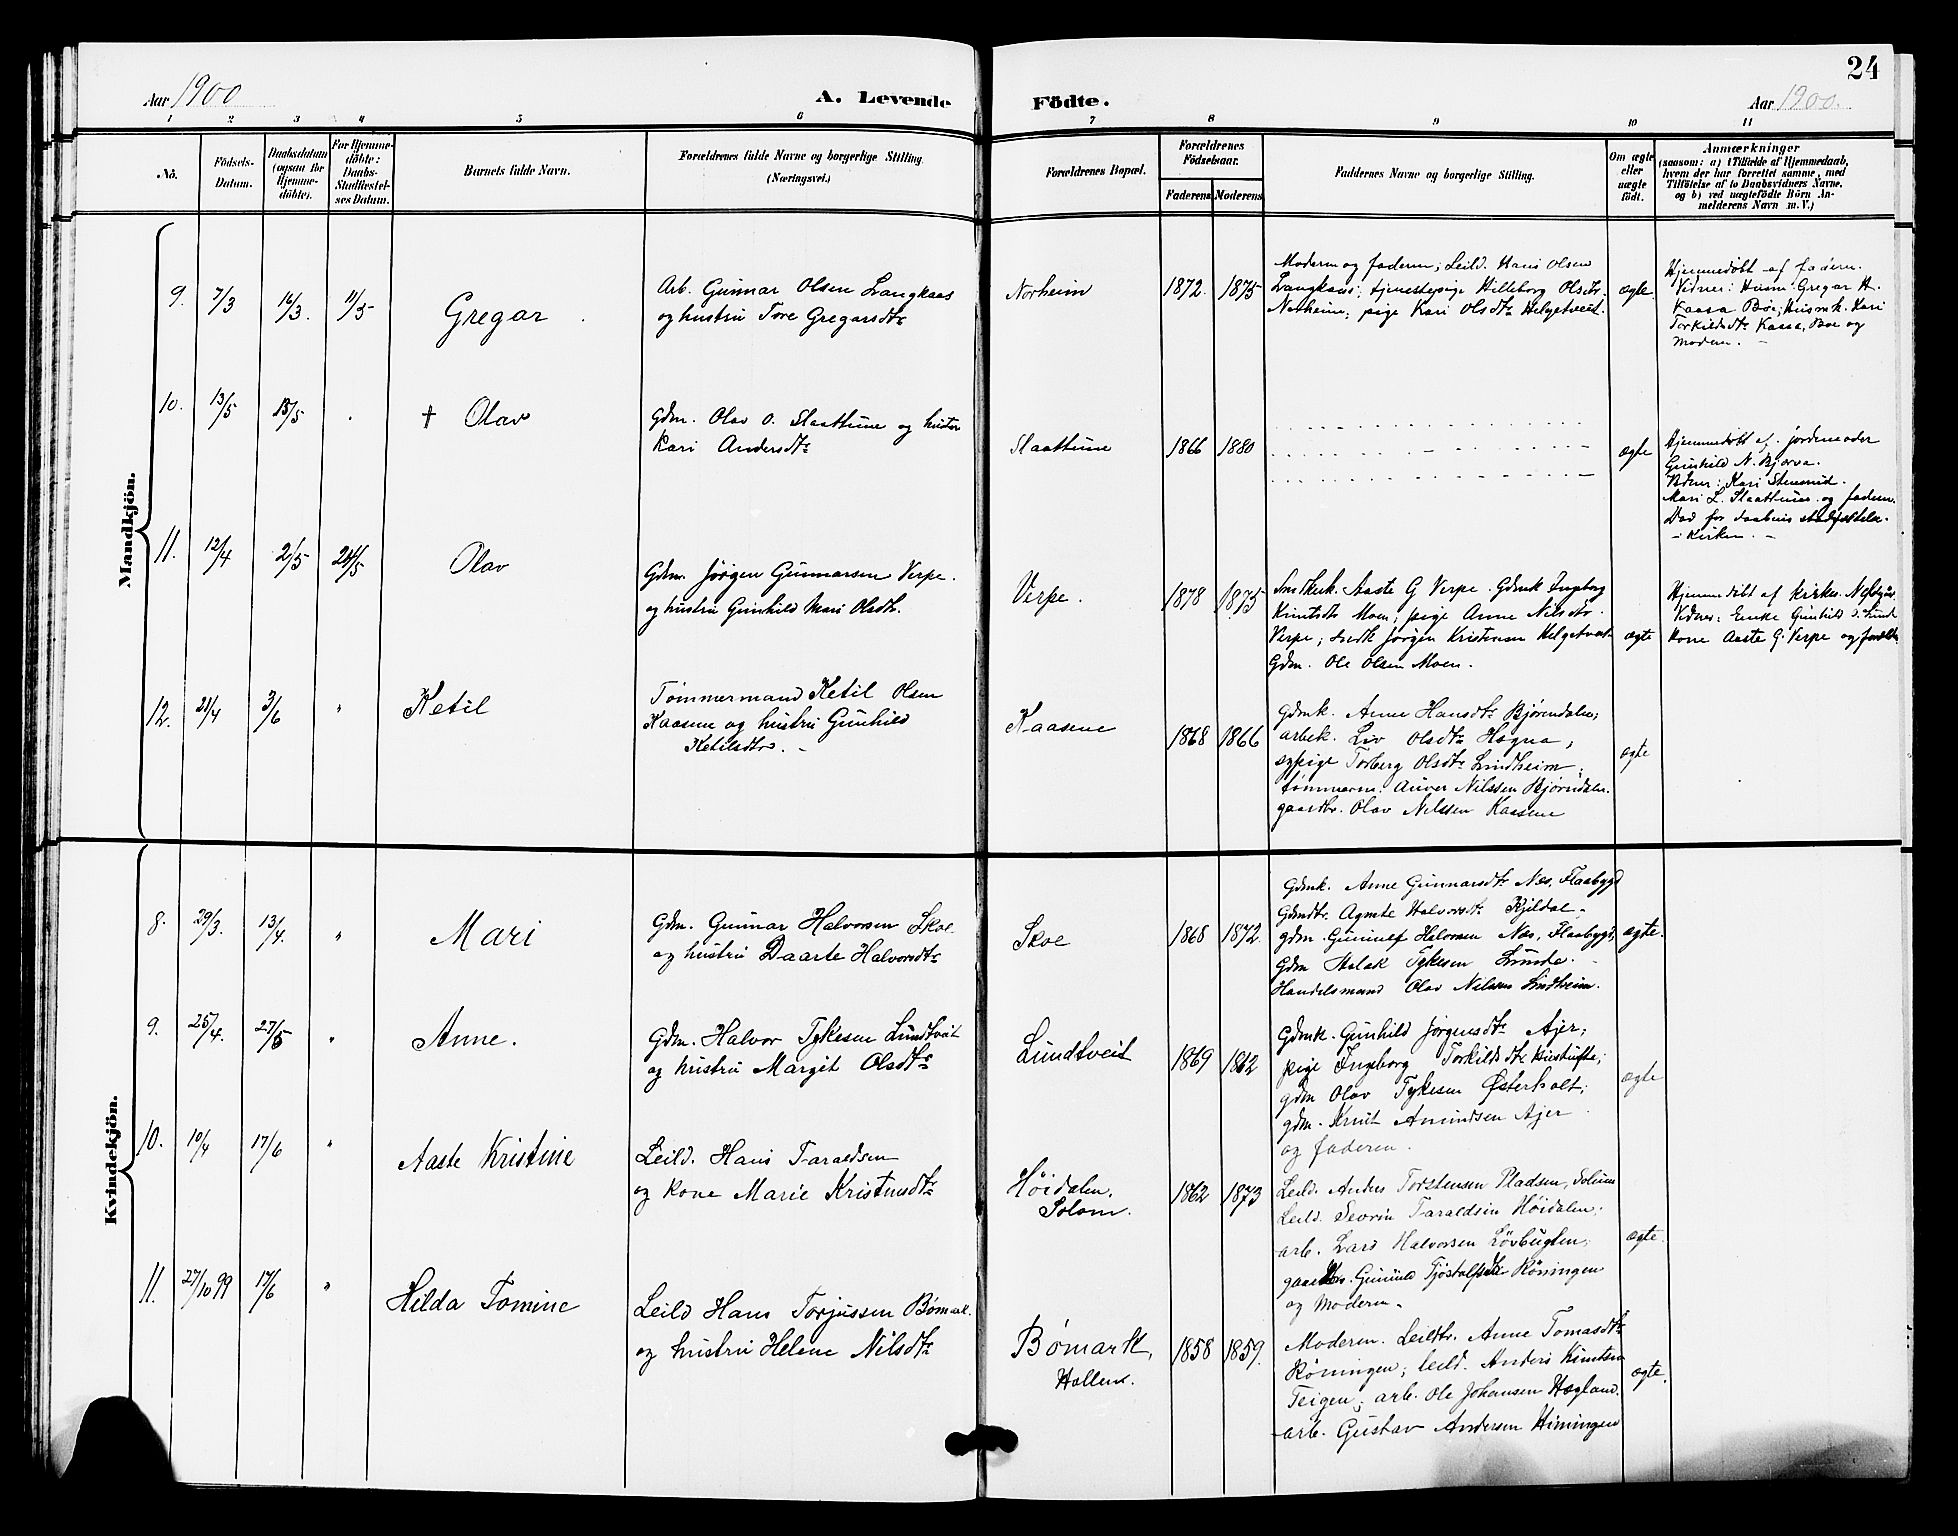 24
Aar 1900
A. Levende Födte.
Aar 1900.
1 2 3 4 5 6 7 8 9 10 11
No.
Födsels-
Datum.
Daabsdatum
(ogsaa for
Hjemme-
döbte).
For Hjemme-
döbte:
Daabs-
Stadfæstel-
ses Datum.
Barnets fulde Navn.
Forældrenes fulde Navne og borgerlige Stilling.
(Næringsvei.)
Forældrenes Bopæl.
Forældrenes
Födselsaar.
Faderens Moderens
Faddernes Navne og borgerlige Stilling.
Om ægte
eller
uægte
födt.
Anmærkninger
(saasom: a) i Tilfælde af Hjemmedaab,
hvem der har forrettet samme, med
Tilföielse af to Daabsvidners Navne,
og b) ved uægtefödte Börn An-
melderens Navn m. V.)
Mandkjön.
9. 7/3 16/3. 11/5 Gregar
Arb. Gunnar Olsen Langkaas
og hustru Tore Gregarsdtr
Norheim 1872. 1875
Moderen og faderen; Leild. Hans Olsen
Langkaas; tjenestepige Hilleborg Olsdtr.
Norheim; pige Kari Olsdtr Helgetveit.
ægte
Hjemmedöbt af faderen.
Vidner: Husm. Gregar H.
Kaasa Böe; Husmk. Kari
Torkildsdtr Kaasa, Böe og
Moderen. -
10. 13/5 15/5 . † Olav
Gdm. Olav O. Slaattune og hustru
Kari Andersdtr
Slaattune 1866 1880
ægte
Hjemmedöbt af jordemoder
Gunhild N. Bjorva.
Vidner: Kari
Mari L. Slaattune og faderen.
Död för daabens stadfæstelse
i Kirken. -
11. 12/4 2/5 24/5 Olav
Gdm. Jörgen Gunnarsen Verpe.
og hustru Gunhild Mari Olsdtr.
Verpe. 1878 1875
Aaste G Verpe. Gdmk Ingeborg
Knutsdtr Moen; pige Anne Nilsdtr.
Verpe; Jörgen Kristensen Helgetveit
Gdm. Ole Olsen Moen.
ægte
Hjemmedöbt af kirkes.
Vidner: Enke Gunhild J. Lund
Kone Aaste G. Verpe og
12. 21/4 3/6 " Ketil
Tömmermand Ketil Olsen
Kaasene og hustru Gunhild
Ketilsdtr. -
Kaasene 1868 1866
Gdmk. Anne Hansdtr Bjørndalen;
arbek. Liv Olsdtr Hogna;
sypige Torberg Olsdtr Lindheim;
tömmerm. Anver Nilssen Bjørndalen.
gaardbr. Olav Nilssen Kaasene
ægte
Kvindekjön.
8. 29/3. 13/4. " Mari
Gdm. Gunnar Halvorsen Skoe
og hustru Daarte Halvorsdtr
Skoe 1868 1872
Gdmk. Anne Gunnarsdtr Næs, Flaabygd
Gdmdtr. Agnete Halvorsdtr Kjildal
gdm. Gunnulf Halvorsen Næs, Flaabygd,
Gdm Aslak Tykesen Lunde.
Handelsmand Olav Nilssen Lindheim.
ægte.
9. 25/4. 27/5 " Anne.
Gdm. Halvor Tykesen Lundtveit
og hustru Margit Olsdtr
Lundtveit 1869 1862
Gdmk. Gunhild Jørgensdtr Ajer;
pige Ingeborg Torkildsdtr;
gdm Olav Tykesen Østerholt;
gdm. Knut Amundsen Ajer
og faderen.
ægte
10. 10/4 17/6 " Aaste Kristine
Leild. Hans Taraldsen
og kone Marie Kristensdtr
Höidalen,
Solum. 1862 1873
Leild. Anders Torstensen Pladsen, Solum
Leild. Severin Taraldsen Höidalen;
arb. Lars Halvorsen Lövbugten;
Gunuld Tjöstolfsen Röningen
og Moderen.
ægte.
11. 27/10 99 17/6 " Hilda Tomine
Leild Hans Torjussen Bømark.
og hustru Helene Nilsdtr
Bømark,
Hollen. 1858 1859.
Moderen. Leildtr. Anne Tomasdtr
Röningen; leild. Anders Knutsen
Teigen; arb. Ole Johansen Hægland.
arb. Gustav Andersen Hiningen
ægte.